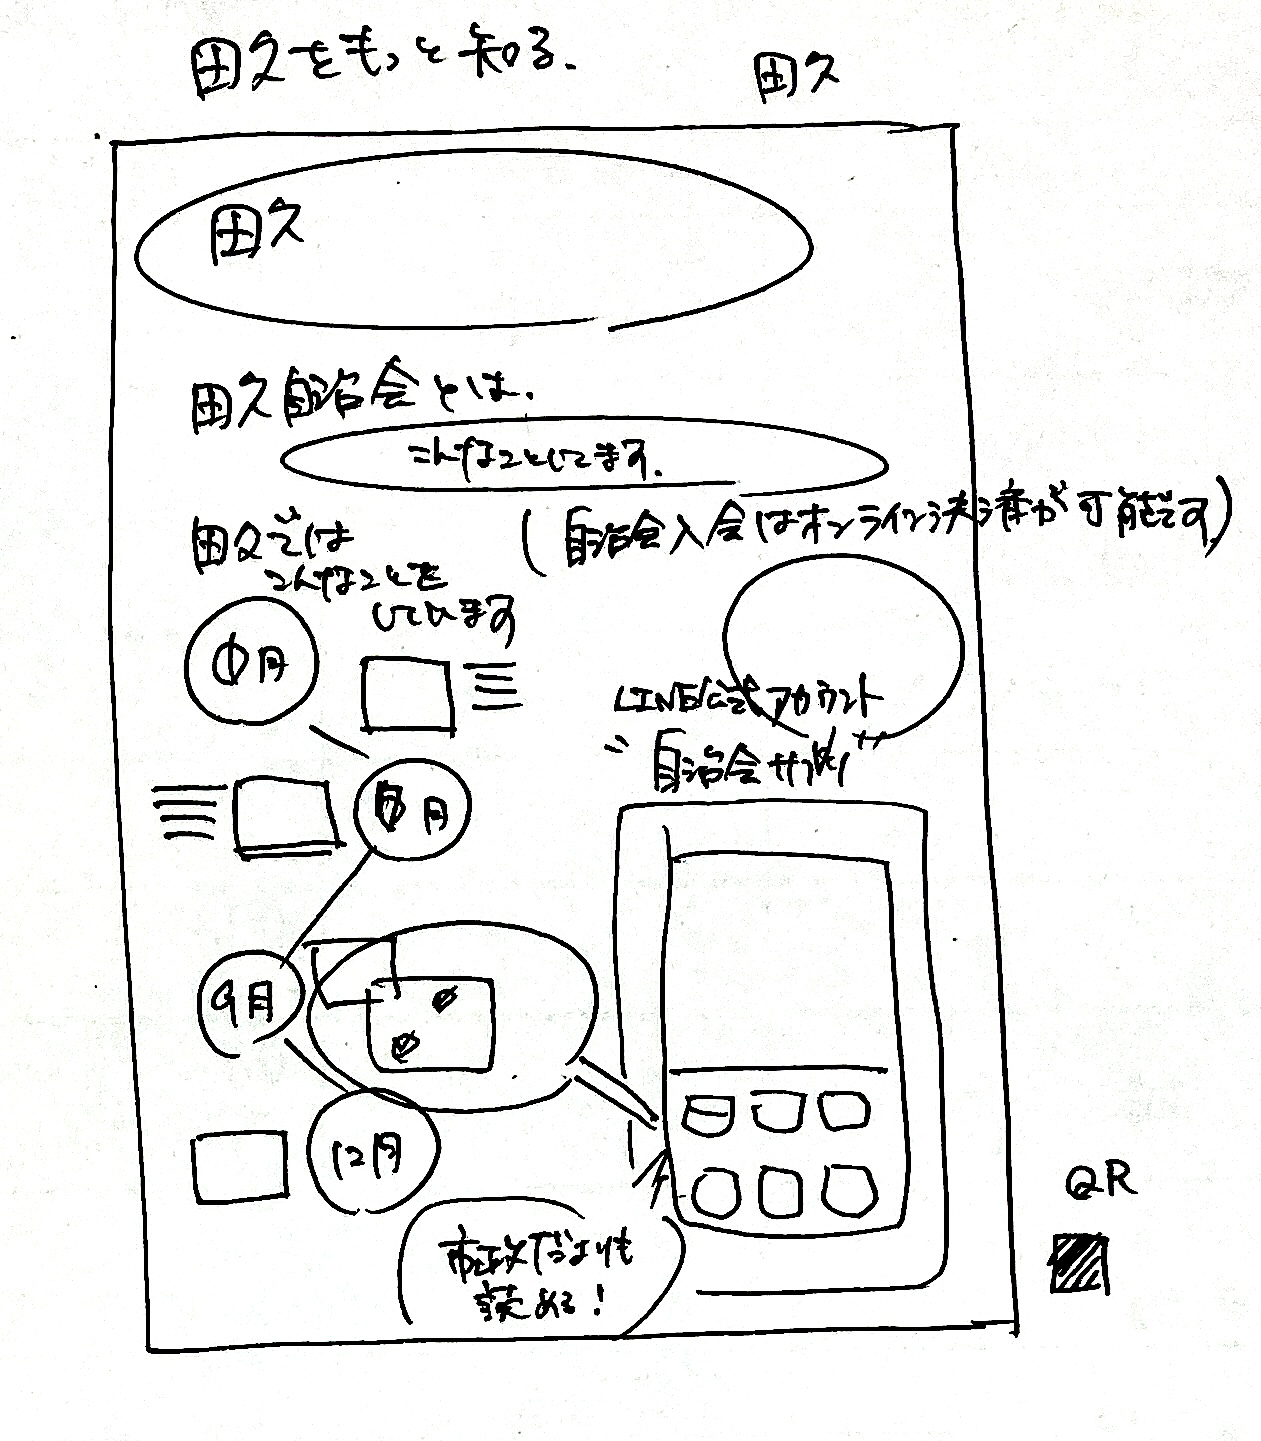 田久をもっと知る.
田久
田久
田久自治会とは.
こんなことしてます.
(自治会入会はオンライン決済が可能です)
田久では
こんなことを
しています
月
LINE公式アカウント
"自治会サプリ"
月
9月
12月
市政だよりも
読める!
QR